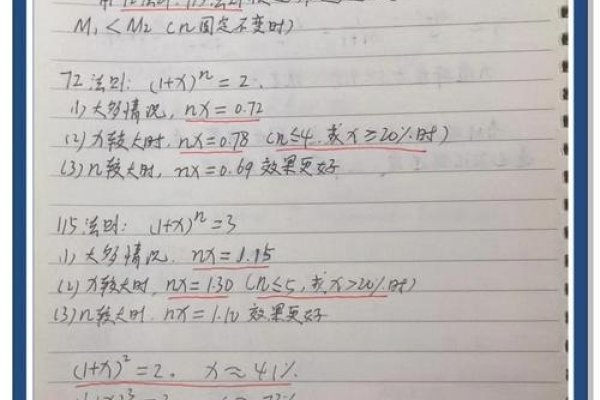 M₁ < M₂ (n固定不变时)
72法则: (1+x)ⁿ = 2.
(1) 大多情况, nx = 0.72
(2) x较大时, nx = 0.78 (n≤4, 或x≥20%时)
(3) n较大时, nx = 0.69 效果更好
115法则: (1+x)ⁿ = 3
(1) 大多情况. nx = 1.15
(2) x较大时, nx = 1.30 (n≤5, 或x>20%时)
(3) n较大时. nx = 1.10 效果更好
(1+x)² = 2。 x ≈ 41%.